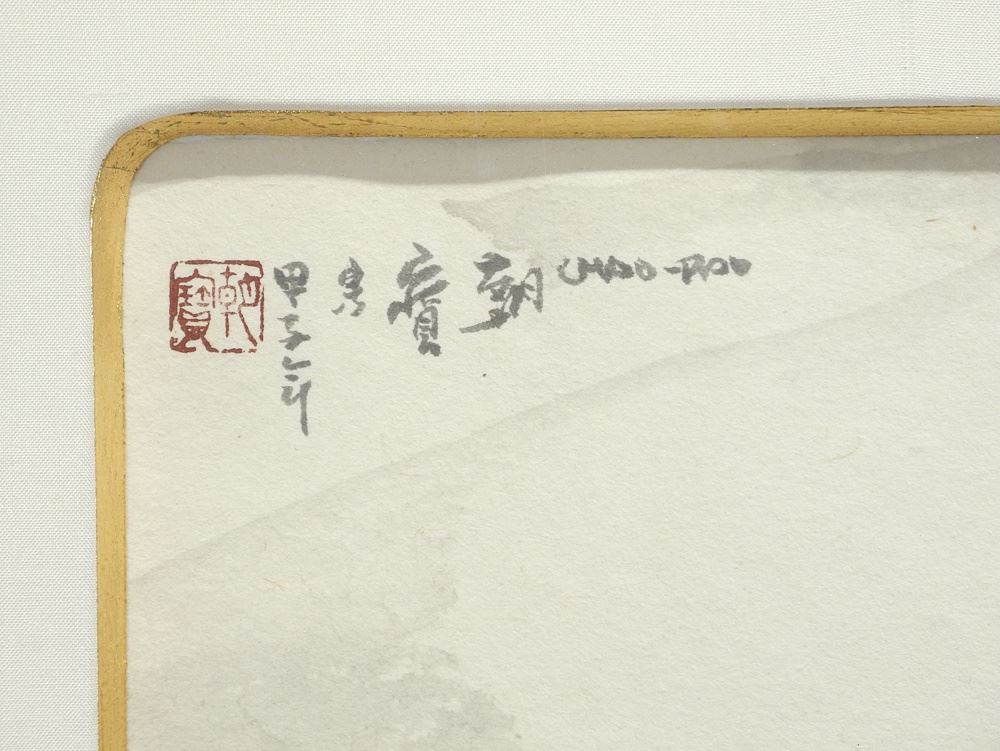 CHAO-PAO
朝
寶
甲子年
朝寶